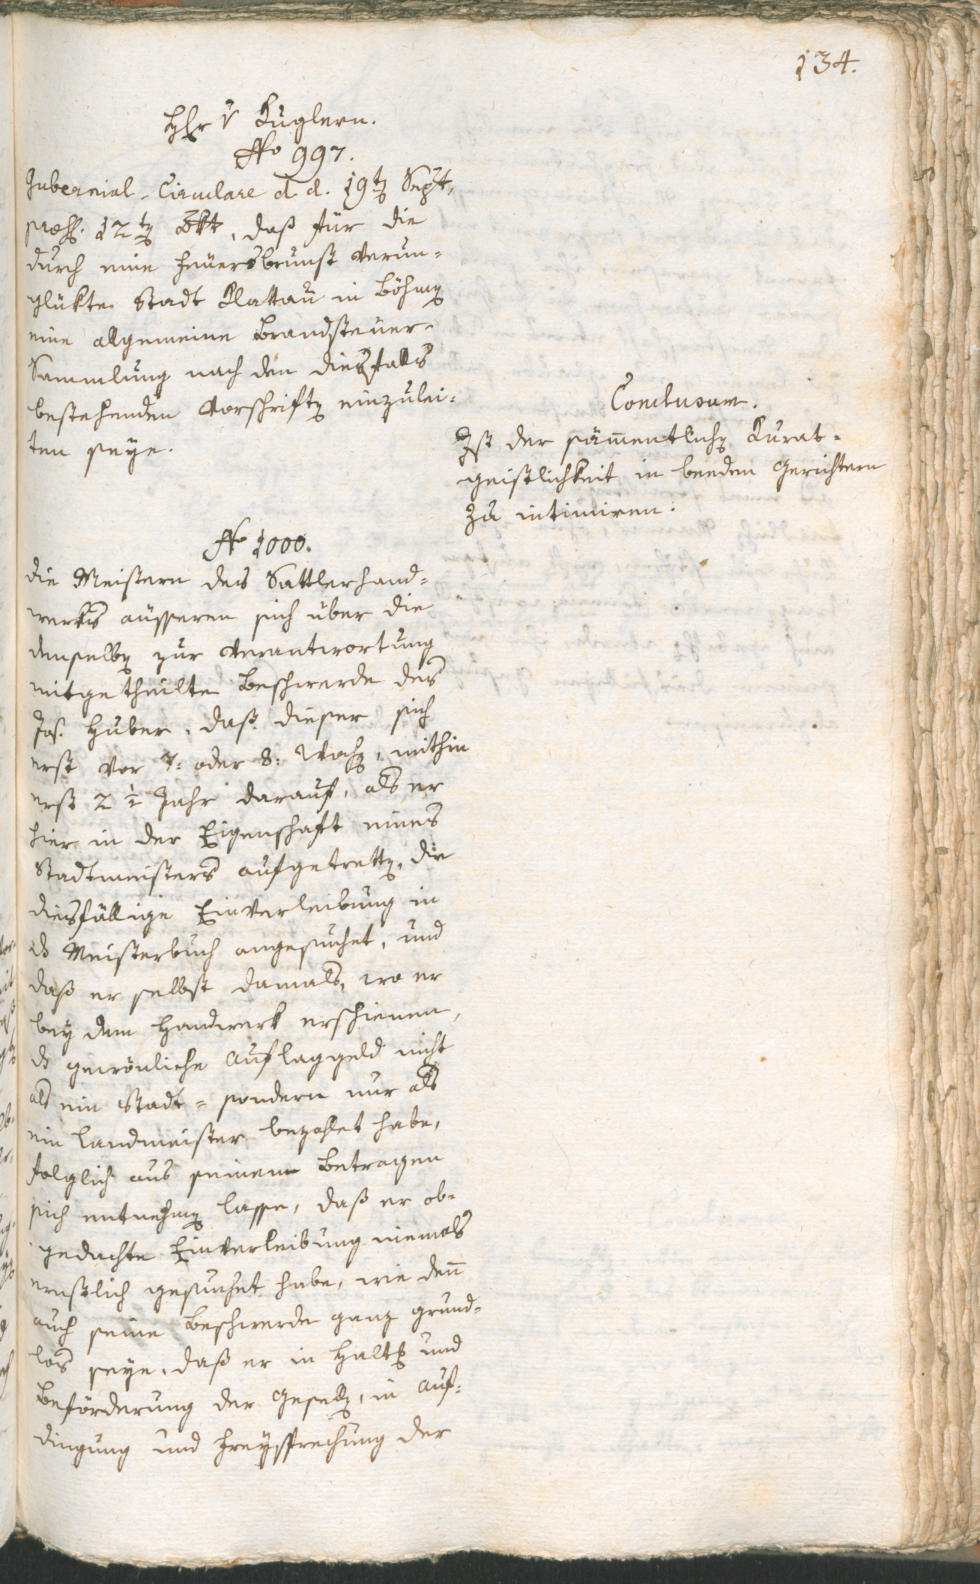 134.
Hhr v Kuglern.
No 997.
Gubernial-Circulare d. d. 19ten Sept,
præs. 12ten 8bt, daß für die
durch eine Feuersbrunst verun-
glükte Stadt Klattau in Böhmen
eine allgemeine Brandsteuer-
Sammlung nach den diesfalls
bestehenden Vorschriften einzulei-
ten seye.
Conclusum.
Ist der sämentlichen Kurat-
geistlichkeit in beeden Gerichtern
zu intimiren.
No 1000.
die Meistern des Sattlerhand-
werks äusseren sich über die
denselben zur Verantwortung
mitgetheilte Beschwerde des
Jos. Huber, daß dieser sich
erst vor 7: oder 8: Wochen, mithin
erst 2 1/2 Jahr darauf, als er
hier in der Eigenschaft eines
Stadtmeisters aufgetretten, die
diesfällige Einverleibung in
ds Meisterbuch angesuchet, und
daß er selbst damals, wo er
bey dem Handwerk erschienen,
ds gewönliche Auflaggeld nicht
als ein Stadt- sondern nur als
ein Landmeister bezahlet habe,
folglich aus seinem Betragen
sich entnehmen lasse, daß er ob-
gedachte Einverleibung niemals
ernstlich gesuchet habe, wie den
auch seine Beschwerde ganz grund-
los seye, daß er in Haltung und
Beförderung der Gesellen, in Auf-
dingung und Freysprechung der